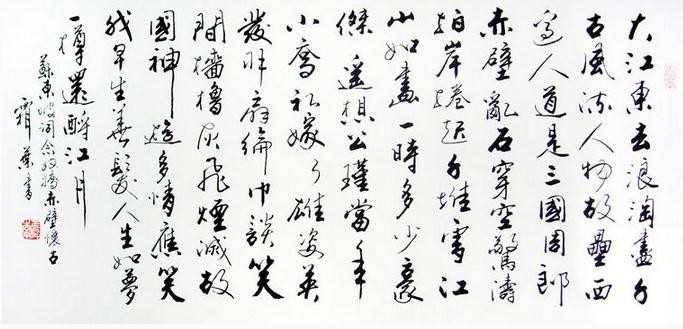 大江東去浪淘盡千
古風流人物故壘西
邊人道是三國周郎
赤壁亂石穿空驚濤
拍岸捲起千堆雪江
山如畫一時多少豪
傑遙想公瑾當年
小喬初嫁了雄姿英
發羽扇綸巾談笑
間檣櫓灰飛煙滅故
國神遊多情應笑
我早生華髮人生如夢
一樽還酹江月
蘇東坡詞念奴嬌赤壁懷古
霜葉書